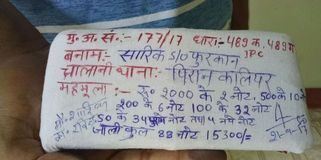 मु. अ. सं. :- 177/17 धारा :- 489 क, 489 ग
IPC
बनाम :- सारिक S/O फुरकान
चालानी थाना :- पिरान कलियर
महमूला :- रु० 2000 के 2 नोट, 500 के 10 नोट
200 के 6 नोट 100 के 32 नोट
50 के 34 नोट तथा 4 नये नोट
जाली कुल 88 नोट 15300/=